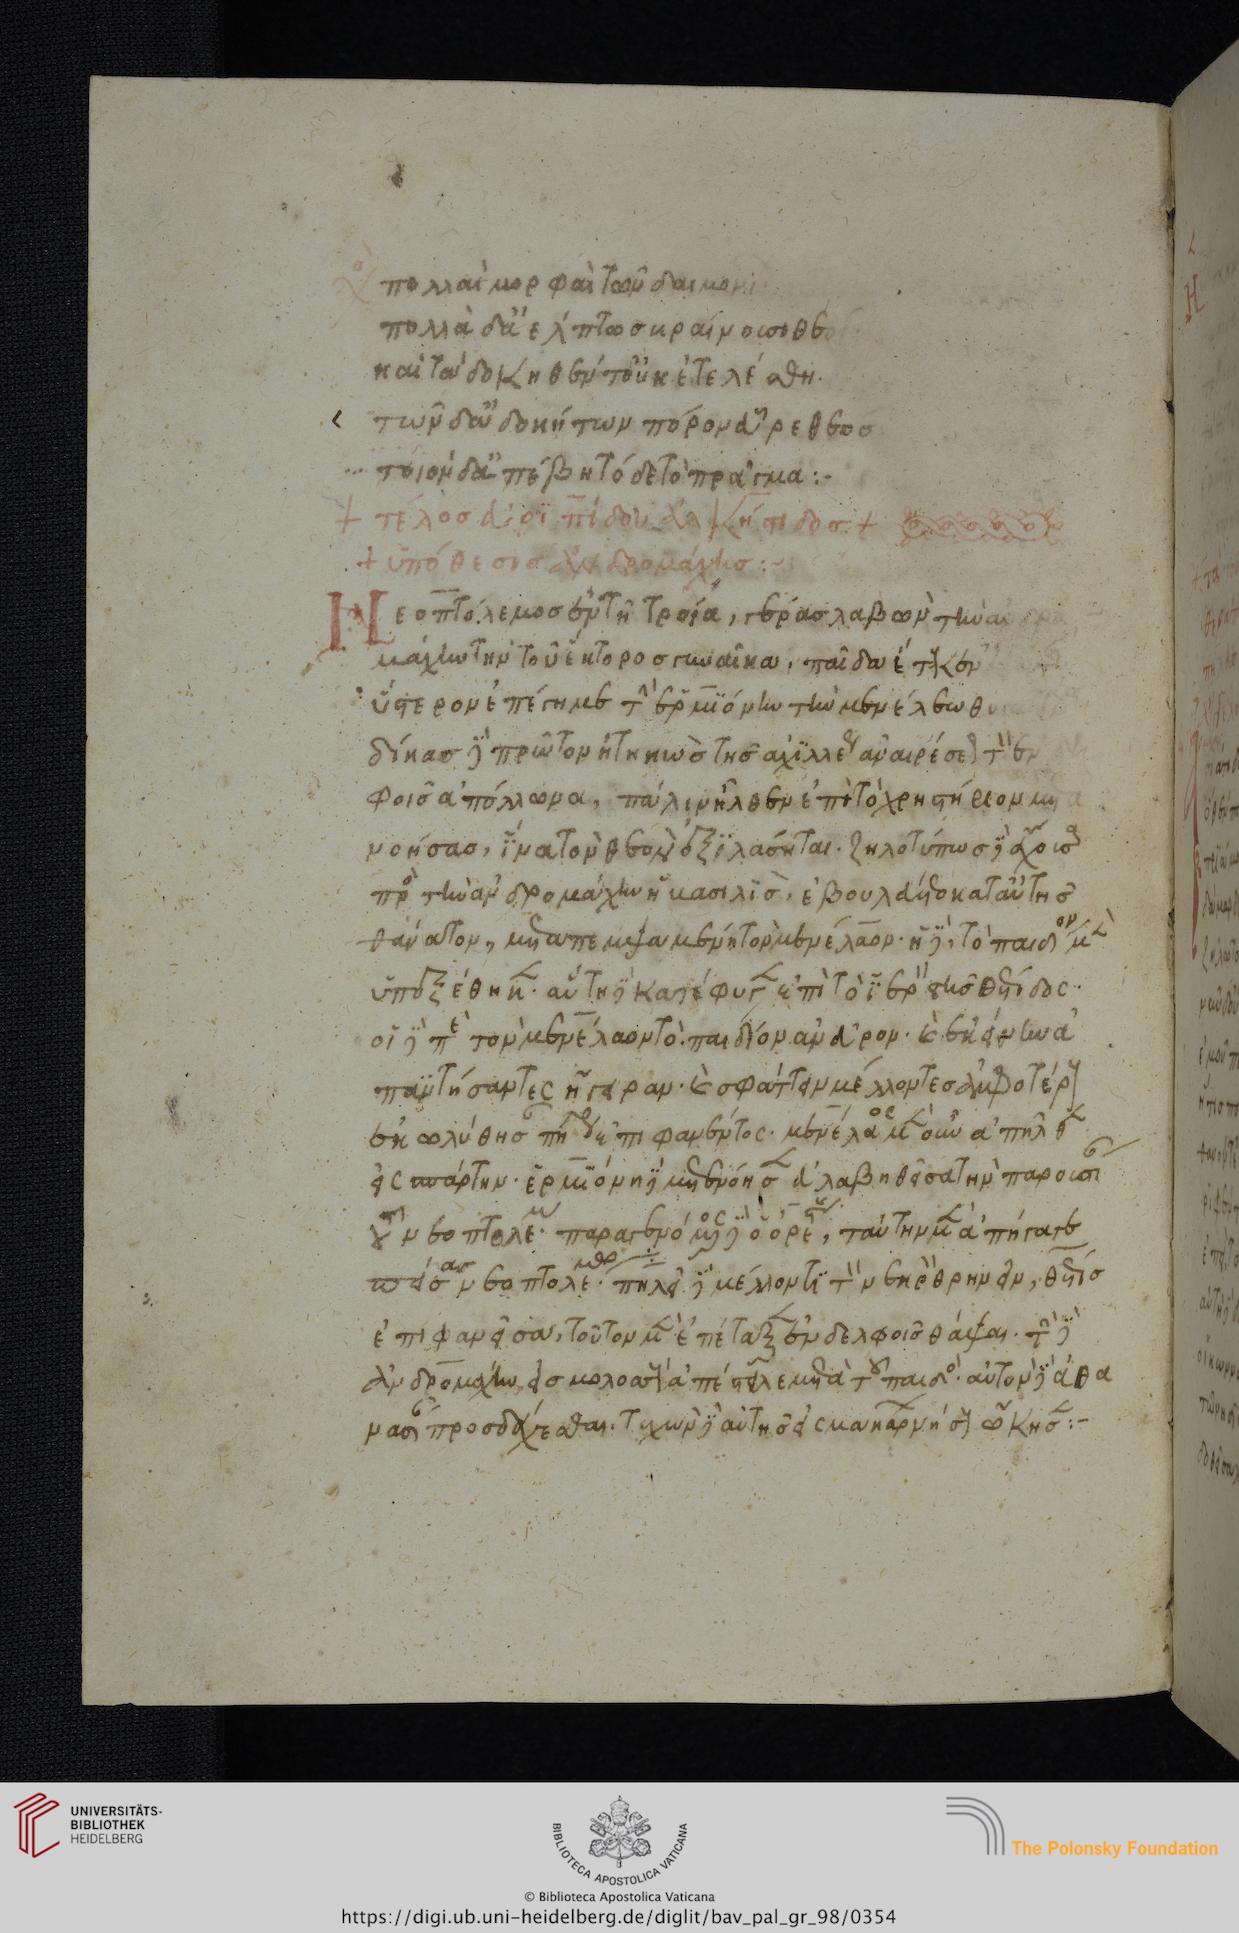 χο
πολλαὶ μορφαὶ τῶν δαιμονί
πολλὰ δ' ἀέλπτωσ κραίνουσι θεο
καὶ τὰ δοκηθέντ' οὐκ ἐτελέσθη.
τῶν δ' ἀδοκήτων πόρον εὗρε θεόσ
τοιόνδ' ἀπέβη τόδε τὸ πρᾶγμα :-
+ τέλοσ εὐριπίδου ἀλκήστιδοσ +
+ ὑπόθεσισ ἀνδρομάχησ :-
Νεοπτόλεμοσ ἐν τῆ τροία, γέρασ λαβὼν τὴν ἀνδρο
μάχην τὴν τοῦ ἕκτοροσ γυναῖκα, παῖδα ἔτεκεν
ὕστερον ἐπέγημε τὴν ἑρμιόνην τὴν μενέλεω θ
δίκασ δὲ πρῶτον ἠτηκὼσ τῆσ ἀχιλλέωσ ἀναιρέσεωσ τὸν ἐν
φοῖσ ἀπόλλωνα, πάλιν ἦλθεν ἐπὶ τὸ χρηστήριον με
νοήσασ, ἵνα τὸν θεὸν ἐξιλάσηται. ζηλοτύπωσ δὲ ἔχουσα
πρὸσ τὴν ἀνδρομάχην ἡ βασιλὶσ, ἐβουλεύετο κατ' αὐτῆσ
θάνατον, μεταπεμψαμένη τὸν μενέλαον. ἡ δὲ, τὸ παιδίον μὲν
ὑπεξέθηκεν. αὐτὴ δὲ κατέφυγεν ἐπὶ τὸ ἱερὸν τῆσ θέτιδος.
οἱ δὲ περὶ τὸν μενέλαον τὸ παιδίον ἀνεῦρον. καὶ ἐκείνην ἀ
πατήσαντες ἤγειραν. καὶ σφάττειν μέλλοντεσ ἀμφοτέρουσ
ἐκωλύθησαν πηλέωσ ἐπιφανέντος. μενέλαος μὲν οὖν ἀπῆλθεν
εἰς σπάρτην. ἑρμιόνη δὲ μετενόησεν εὐλαβηθεῖσα τὴν παρουσίαν
τοῦ νεοπτολέμου. παραγενόμενος δὲ ὁ ὀρέστησ, ταύτην μὲν ἀπήγαγε
πείσασ νεοπτολέμω. πηλεῖ δὲ μέλλοντι τὸν νεκρὸν θρηνεῖν, θέτισ
ἐπιφανεῖσα, τοῦτον μὲν ἐπέταξεν ἐν δελφοῖσ θάψαι. τὴν δὲ
ἀνδρομάχην εἰσ μολοσσοὺσ ἀπέστειλε μετὰ τοῦ παιδόσ. αὐτὸν δὲ ἀθα
νασίαν προσδέχεσθαι. τυχὼν δὲ αὐτῆσ εἰς μακάρων νήσουσ ᾤκησεν :-
UNIVERSITÄTS-
BIBLIOTHEK
HEIDELBERG
BIBLIOTECA APOSTOLICA VATICANA
The Polonsky Foundation
© Biblioteca Apostolica Vaticana
https://digi.ub.uni-heidelberg.de/diglit/bav_pal_gr_98/0354